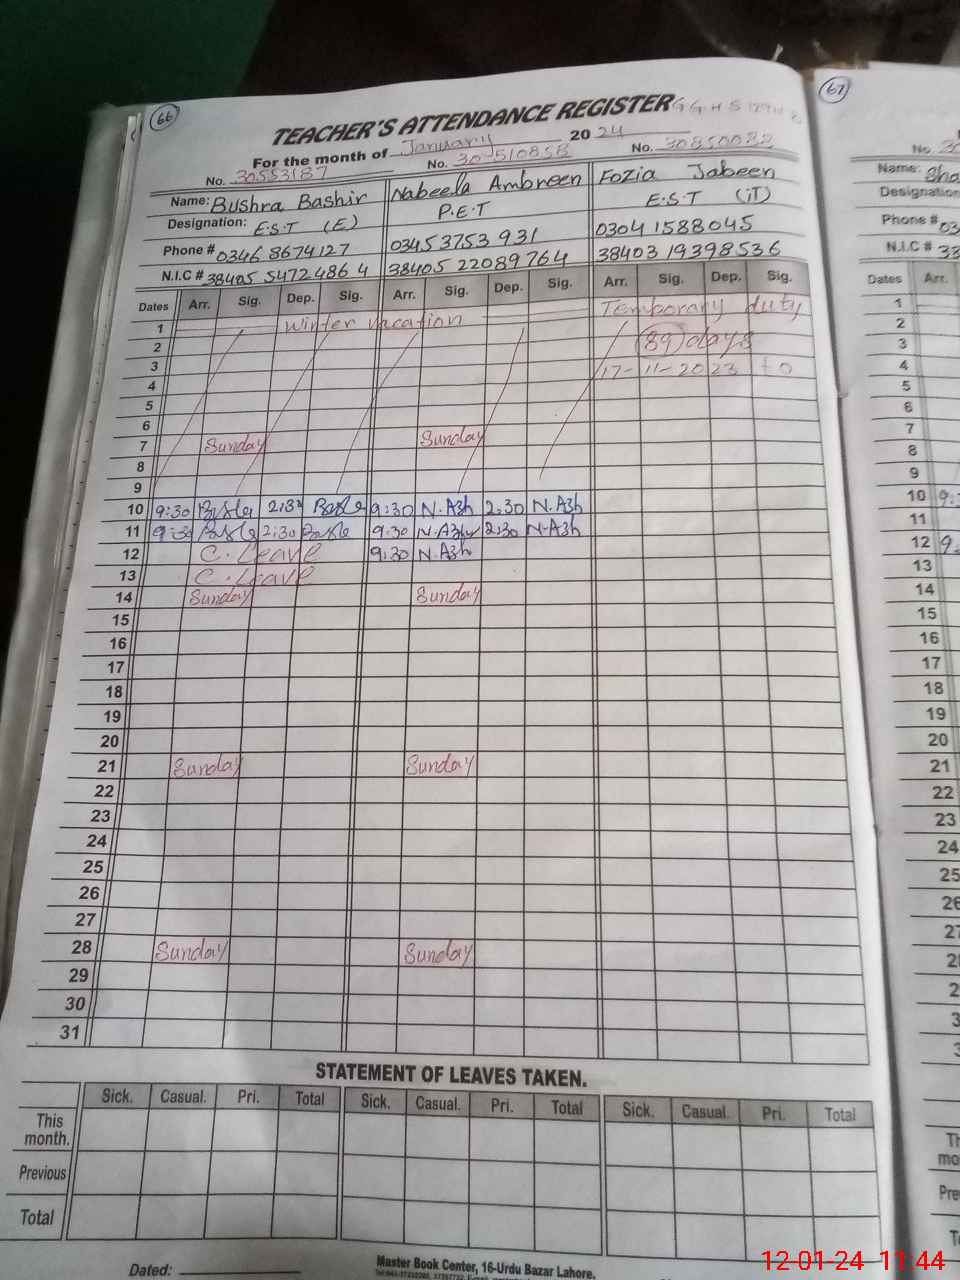 66
67
TEACHER'S ATTENDANCE REGISTER G G H S
For the month of January 2024
No. 30553187 No. 30551085B No. 30850082
Name: Bushra Bashir Nabeela Ambreen Fozia Jabeen
Designation: E.S.T (E) P.E.T E.S.T (iT)
Phone # 0346 8674127 03453753 931 0304 1588045
N.I.C # 38405 5472486 4 38405 22089764 38403 19398536
Dates Arr. Sig. Dep. Sig. Arr. Sig. Dep. Sig. Arr. Sig. Dep. Sig.
1 Winter vacation Temborary duty
2 (89) days
3 17-11-2023 to
4
5
6
7 Sunday Sunday
8
9
10 9:30 2:30 9:30 N.Azh 2:30 N.Azh
11 9:30 2:30 9:30 N.Azh 2:30 N.Azh
12 C. Leave 9:30 N.Azh
13 C. Leave
14 Sunday Sunday
15
16
17
18
19
20
21 Sunday Sunday
22
23
24
25
26
27
28 Sunday Sunday
29
30
31
STATEMENT OF LEAVES TAKEN.
Sick. Casual. Pri. Total Sick. Casual. Pri. Total Sick. Casual. Pri. Total
This month.
Previous
Total
Dated:
Master Book Center, 16-Urdu Bazar Lahore.
No.
Name: Sha
Designation
Phone # 03
N.I.C # 38
Dates Arr.
1
2
3
4
5
6
7
8
9
10 9:
11
12 9
13
14
15
16
17
18
19
20
21
22
23
24
25
26
27
12-01-24 11:44